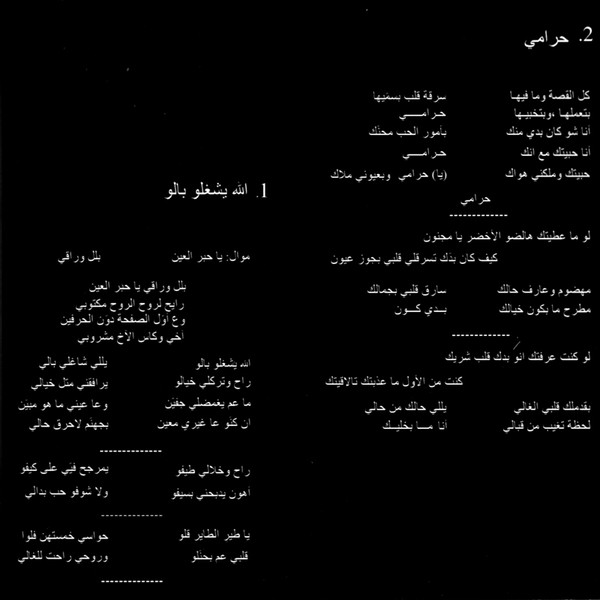 2. حرامي
كل القصة وما فيها سرقة قلب بسميها
بتعملها ،وبتخبيها حرامـــي
أنا شو كان بدي منك بأمور الحب محنّك
أنا حبيتك مع انك حرامـــي
حبيتك وملكني هواك (يا) حرامي وبعيوني ملاك
حرامي
-------------
لو ما عطيتك هالضو الأخضر يا مجنون
كيف كان بدّك تسرقلي قلبي بجوز عيون
مهضوم وعارف حالك سارق قلبي بجمالك
مطرح ما بكون خيالك بـدي كـــون
-------------
لو كنت عرفتك انّو بدك قلب شريك
كنت من الأول ما عذبتك تالاقيتك
بقدملك قلبي الغالي يللي حالك من حالي
لحظة تغيب من قبالي أنا مـــا بخليـــك
1. الله يشغلو بالو
موال: يا حبر العين بلل وراقي
بلل وراقي يا حبر العين
رايح لروح الروح مكتوبي
وع اول الصفحة دوّن الحرفين
أخي وكاس الاخ مشروبي
الله يشغلو بالو يللي شاغلي بالي
راح وتركلي خيالو يرافقني متل خيالي
ما عم يغمضلي جفيّن وعا عيني ما هو مبيّن
ان كنّو عا غيري معين بجهنّم لاحرق حالي
-------------
راح وخلالي طيفو يمرجح فيّي على كيفو
أهون يدبحني بسيفو ولا شوفو حب بدالي
-------------
يا طير الطاير قلو حواسي خمستهن فلوا
قلبي عم بحنّلو وروحي راحت للغالي
-------------